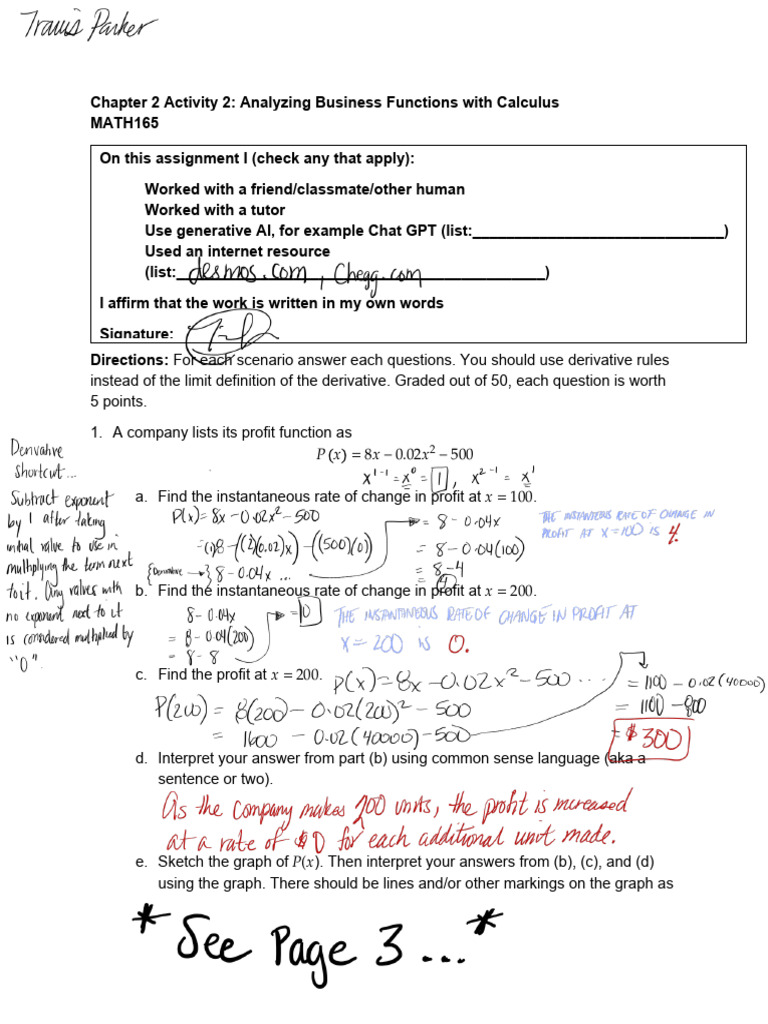 Travis Parker
Chapter 2 Activity 2: Analyzing Business Functions with Calculus
MATH165
On this assignment I (check any that apply):
Worked with a friend/classmate/other human
Worked with a tutor
Use generative AI, for example Chat GPT (list:______________________________)
Used an internet resource
(list: desmos.com, Chegg.com )
I affirm that the work is written in my own words
Signature:
Directions: For each scenario answer each questions. You should use derivative rules
instead of the limit definition of the derivative. Graded out of 50, each question is worth
5 points.
1. A company lists its profit function as
P(x) = 8x − 0.02x² − 500
x¹⁻¹ = x⁰ = 1, x²⁻¹ = x¹
Derivative
shortcut...
Subtract exponent
by 1 after taking
initial value to use in
multiplying the term next
to it. Any values with
no exponent next to it
is considered multiplied by
"0".
a. Find the instantaneous rate of change in profit at x = 100.
P(x) = 8x − 0.02x² − 500
= (1)8 − ((2)(0.02)x) − ((500)(0))
{Derivative → } 8 − 0.04x ...
= 8 − 0.04x
= 8 − 0.04(100)
= 8 − 4
= 4
THE INSTANTANEOUS RATE OF CHANGE IN
PROFIT AT X=100 IS 4.
b. Find the instantaneous rate of change in profit at x = 200.
8 − 0.04x
= 8 − 0.04(200)
= 8 − 8
= 0
THE INSTANTANEOUS RATE OF CHANGE IN PROFIT AT
X = 200 is 0.
c. Find the profit at x = 200.
P(x) = 8x − 0.02x² − 500 ...
P(200) = 8(200) − 0.02(200)² − 500
= 1600 − 0.02(40000) − 500
= 1100 − 0.02(40000)
= 1100 − 800
= $300
d. Interpret your answer from part (b) using common sense language (aka a
sentence or two).
As the company makes 200 units, the profit is increased
at a rate of $0 for each additional unit made.
e. Sketch the graph of P(x). Then interpret your answers from (b), (c), and (d)
using the graph. There should be lines and/or other markings on the graph as
* See Page 3 ... *